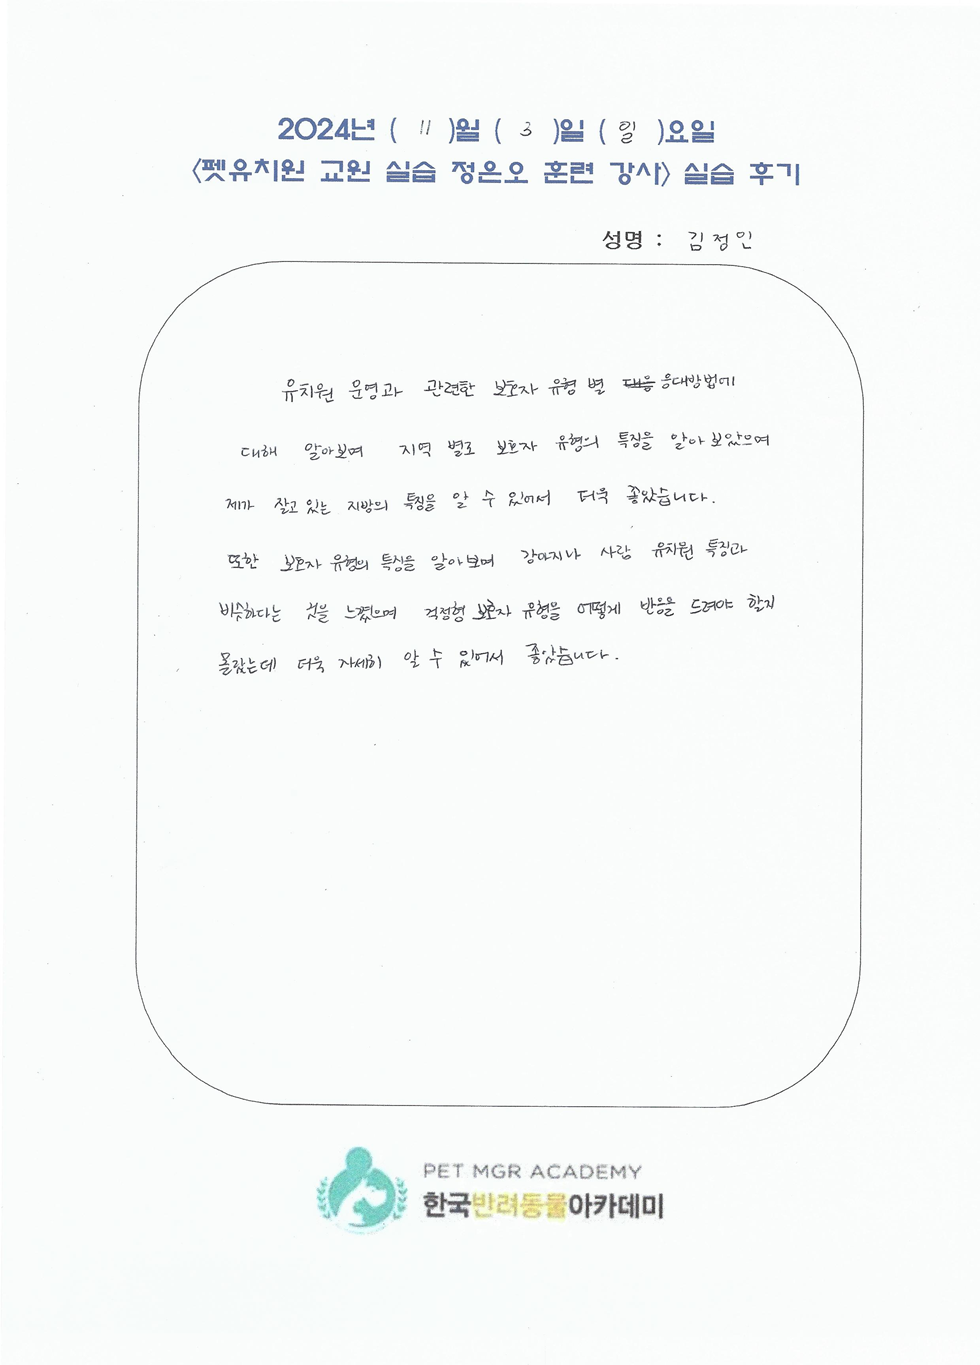 2024년 ( 11 )월 ( 3 )일 ( 일 )요일
<펫유치원 교원 실습 정은오 훈련 강사> 실습 후기
성명 : 김정인
유치원 운영과 관련한 보호자 유형 별 대응 응대방법에
대해 알아보며 지역 별로 보호자 유형의 특징을 알아 보았으며
제가 살고 있는 지방의 특징을 알 수 있어서 더욱 좋았습니다.
또한 보호자 유형의 특징을 알아보며 강아지나 사람 유치원 특징과
비슷하다는 것을 느꼈으며 걱정형 보호자 유형을 어떻게 반응을 드려야 할지
몰랐는데 더욱 자세히 알 수 있어서 좋았습니다.
PET MGR ACADEMY
한국반려동물아카데미